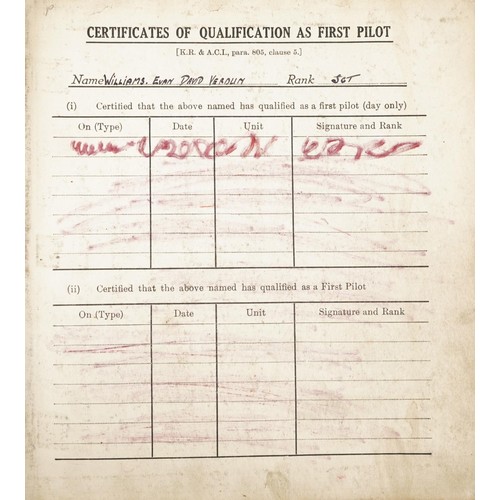 CERTIFICATES OF QUALIFICATION AS FIRST PILOT
[K.R. & A.C.I., para. 805, clause 5.]
Name WILLIAMS. EVAN DAVID VERDUN Rank SGT
(i) Certified that the above named has qualified as a first pilot (day only)
On (Type) Date Unit Signature and Rank
(ii) Certified that the above named has qualified as a First Pilot
On (Type) Date Unit Signature and Rank